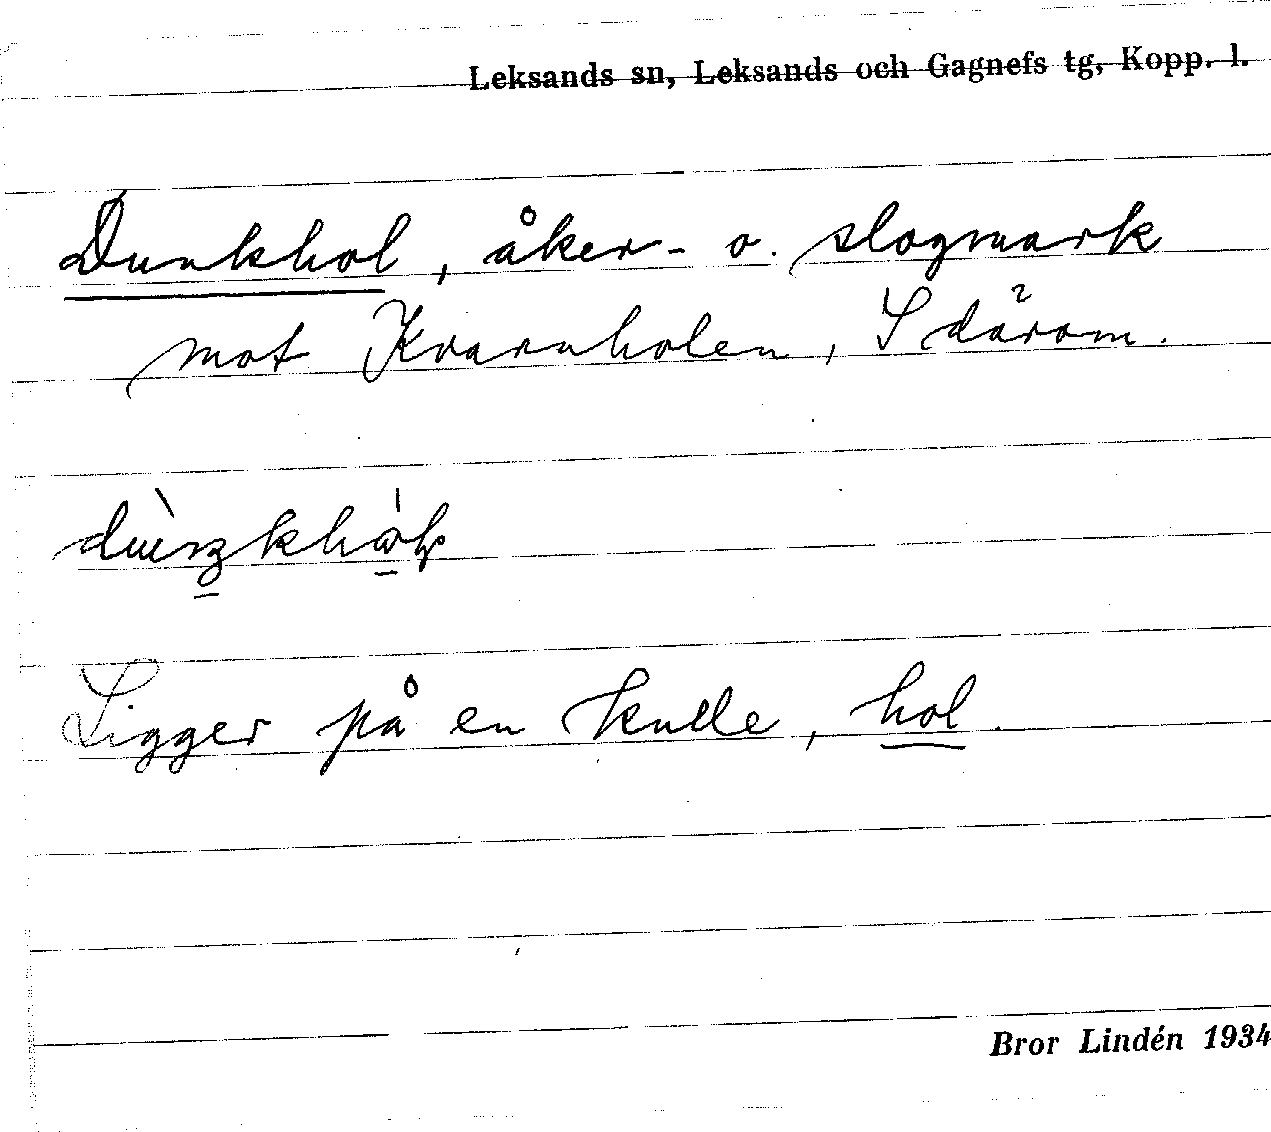 Leksands sn, Leksands och Gagnefs tg, Kopp. l.
Dunkhol, åker- o. slogmark
mot Kvarnholen, S därom.
Ligger på en kulle, hol.
Bror Lindén 1934